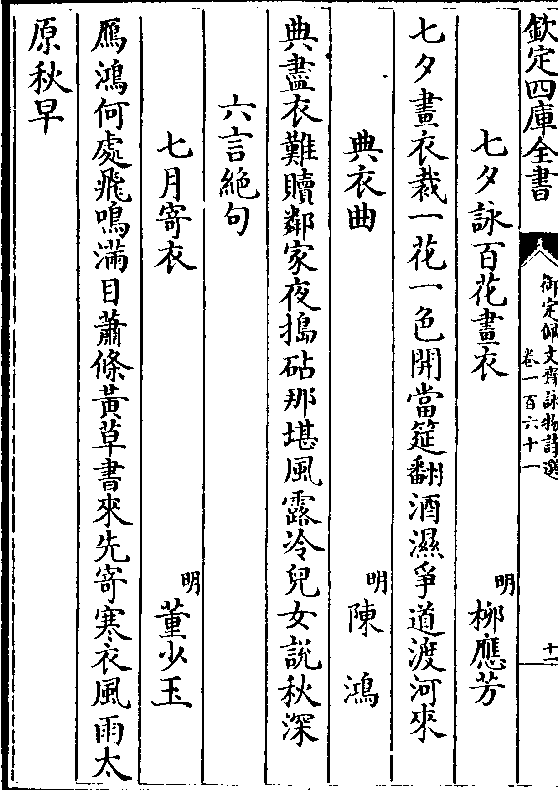 欽定四庫全書
御定佩文齋詠物詩選
卷一百六十一
十一
七夕詠百花畫衣
明
柳應芳
七夕畫衣裁一花一色開當筵翻酒濕爭道渡河來
典衣曲
明
陳鴻
典盡衣難贖鄰家夜搗砧那堪風露冷兒女說秋深
六言絶句
七月寄衣
明
董少玉
鴈鴻何處飛鳴滿目蕭條黃草書來先寄寒衣風雨太
原秋早